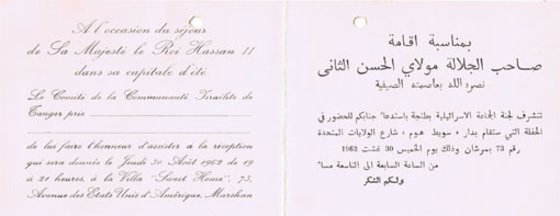 A l'occasion du séjour
de Sa Majesté le Roi Hassan II
dans sa capitale d'été
Le Comité de la Communauté Israélite de
Tanger prie
de lui faire l'honneur d'assister à la réception
qui sera donnée le Jeudi 30 Août 1962 de 19
à 21 heures, à la Villa "Sweet Home", 73,
Avenue des Etats Unis d'Amérique, Marshan
بمناسبة اقامة
صاحب الجلالة مولاي الحسن الثاني
نصره الله بعاصمته الصيفية
تتشرف لجنة الجماعة الاسرائيلية بطنجة باستدعا' جنابكم للحضور في
الحفلة التي ستقام بدار «سويط هوم» شارع الولايات المتحدة
رقم 73 بمرشان وذلك يوم الخميس 30 غشت 1962
من الساعة السابعة الى التاسعة مسا'
ولكم الشكر